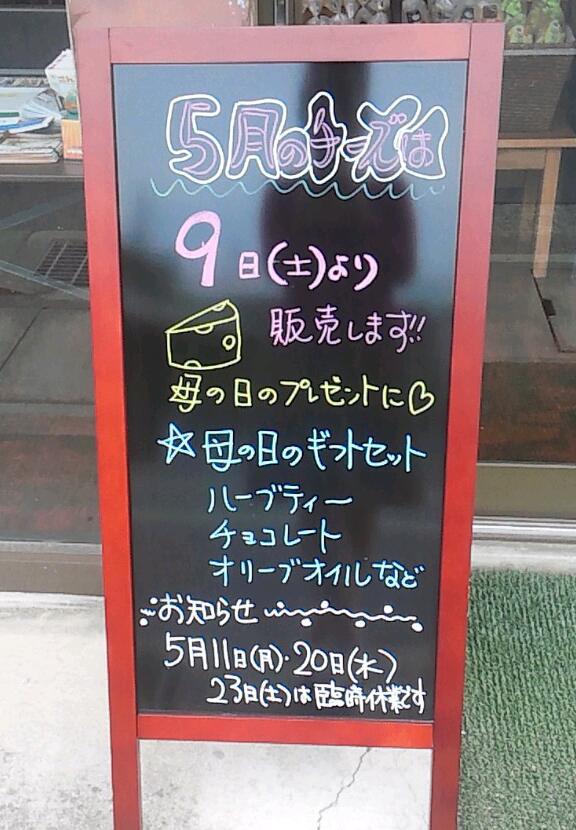 5月のチーズは
9日(土)より
販売します!!
母の日のプレゼントに♡
☆母の日のギフトセット
ハーブティー
チョコレート
オリーブオイルなど
お知らせ
5月11日(月)・20日(水)
23日(土)は臨時休業です